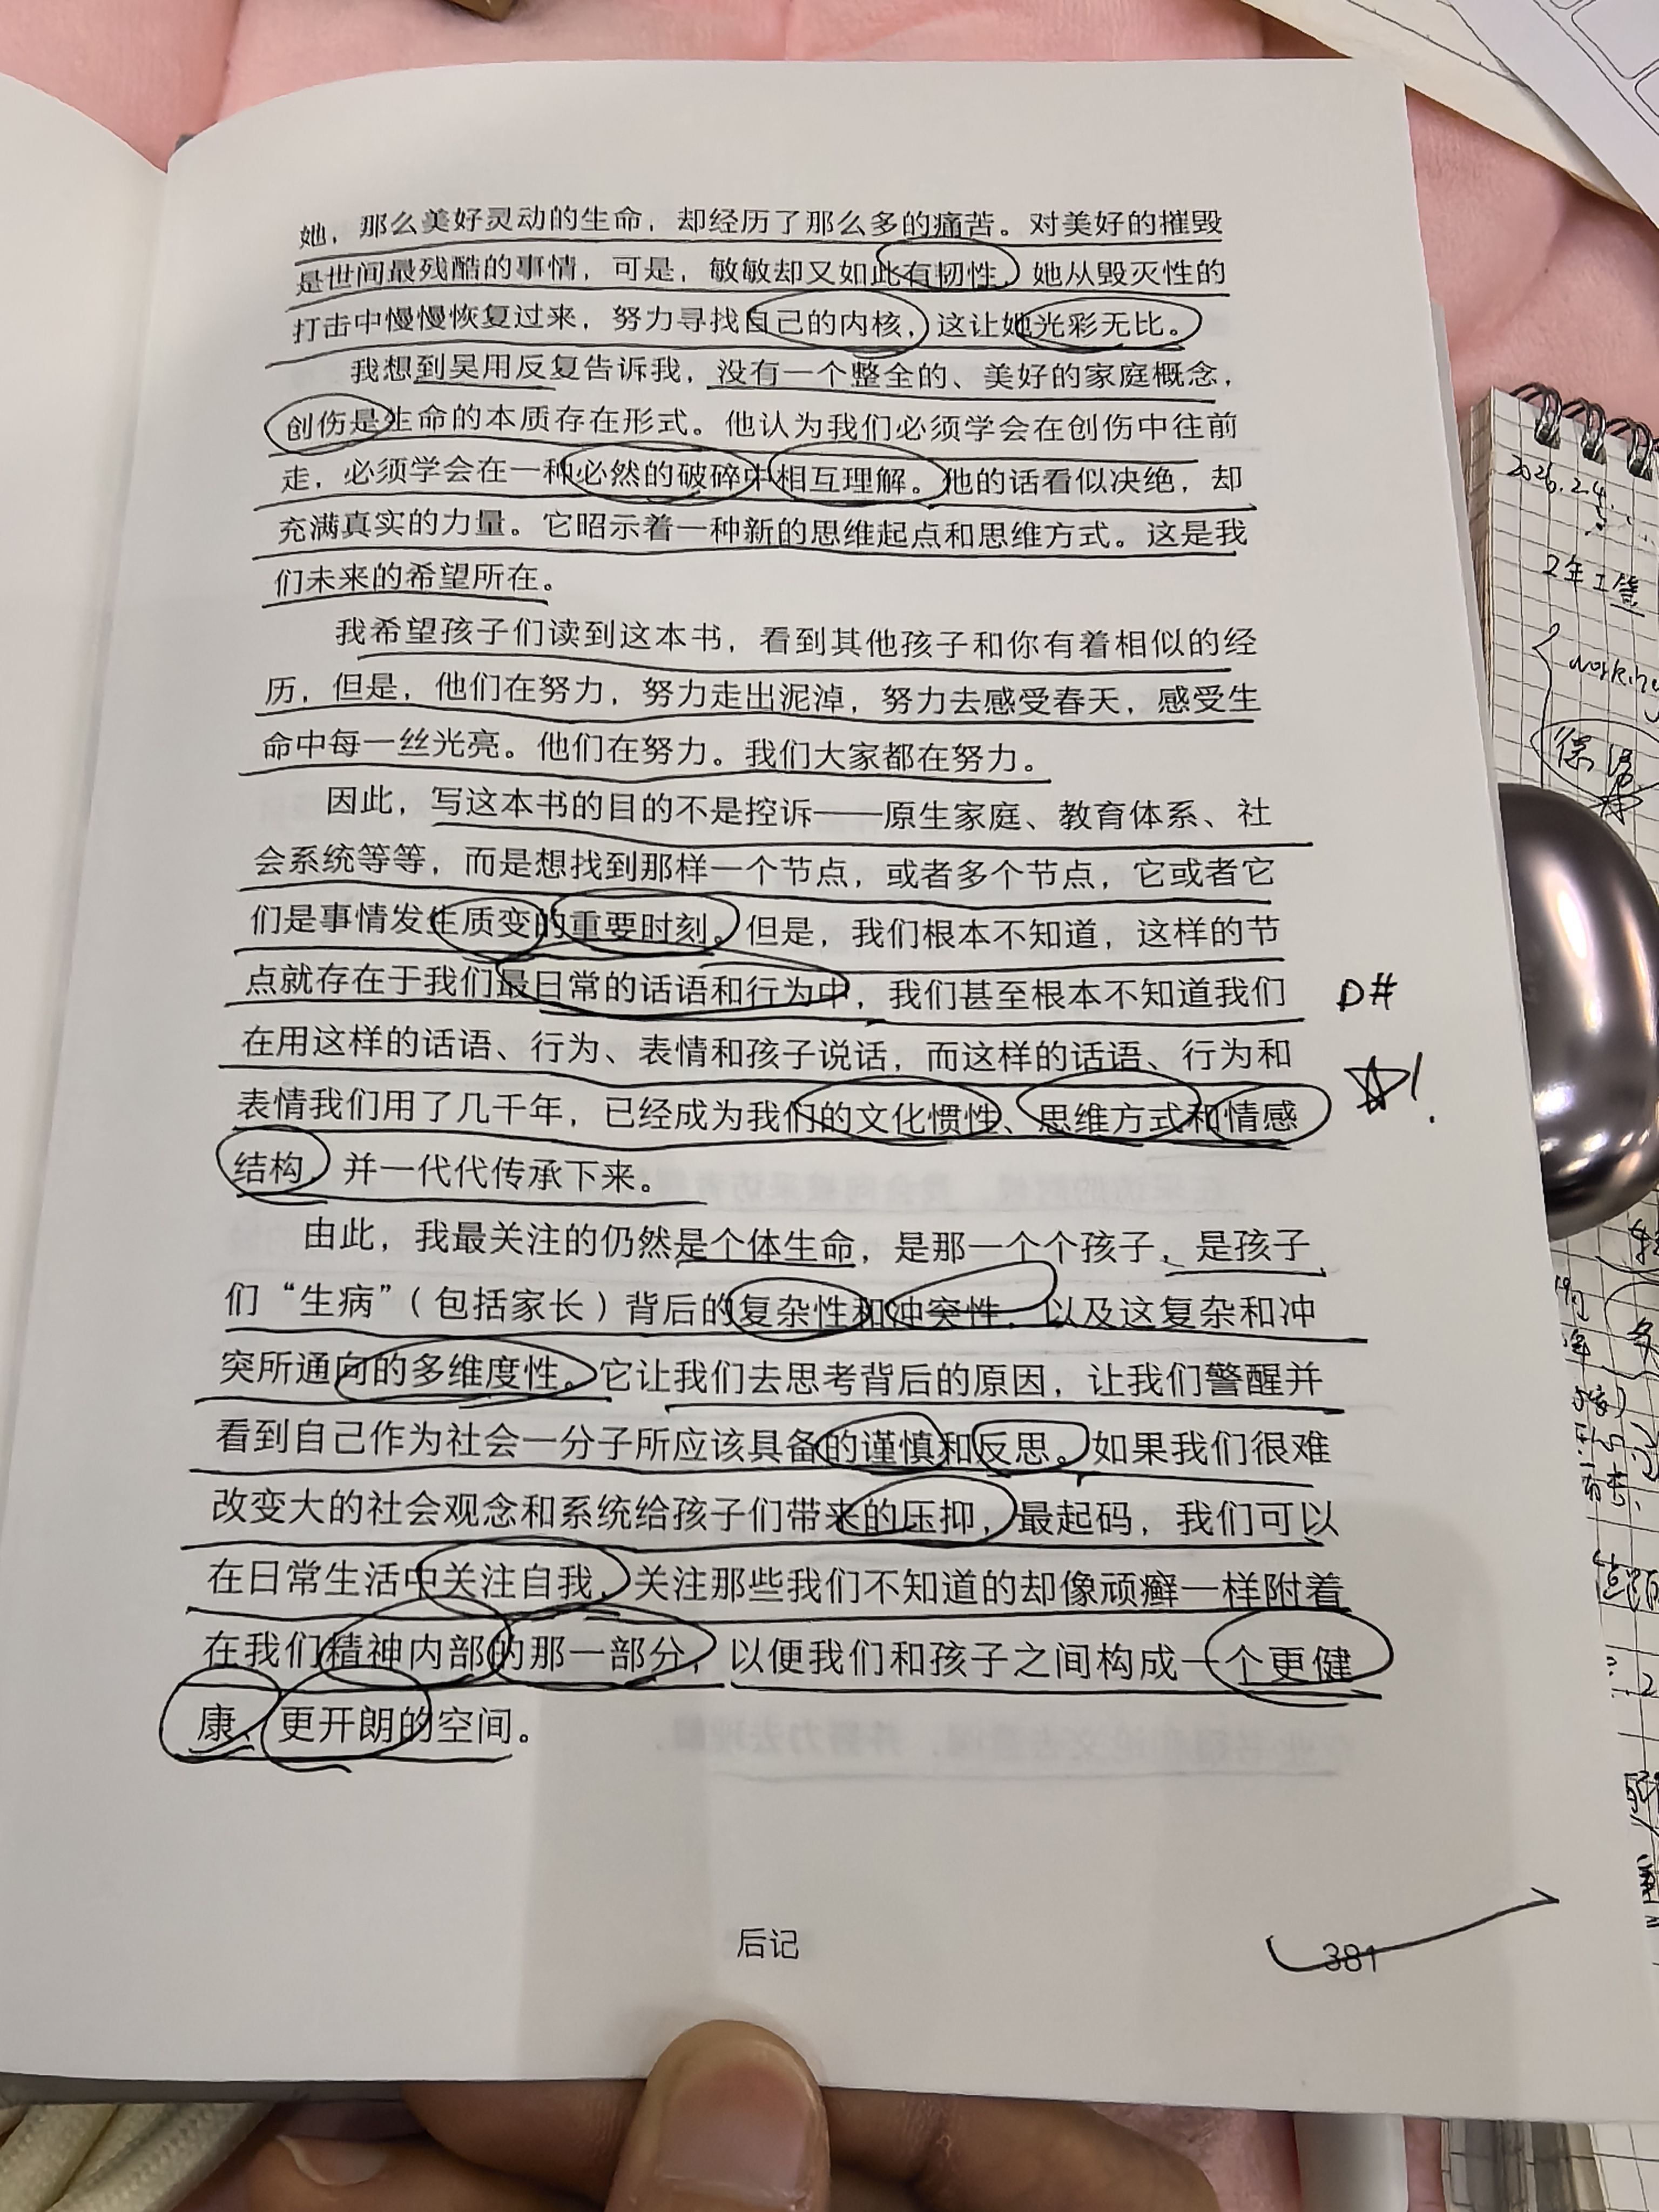 她，那么美好灵动的生命，却经历了那么多的痛苦。对美好的摧毁
是世间最残酷的事情，可是，敏敏却又如此有韧性，她从毁灭性的
打击中慢慢恢复过来，努力寻找自己的内核，这让她光彩无比。
我想到吴用反复告诉我，没有一个整全的、美好的家庭概念，
创伤是生命的本质存在形式。他认为我们必须学会在创伤中往前
走，必须学会在一种必然的破碎中相互理解。他的话看似决绝，却
充满真实的力量。它昭示着一种新的思维起点和思维方式。这是我
们未来的希望所在。
我希望孩子们读到这本书，看到其他孩子和你有着相似的经
历，但是，他们在努力，努力走出泥淖，努力去感受春天，感受生
命中每一丝光亮。他们在努力。我们大家都在努力。
因此，写这本书的目的不是控诉——原生家庭、教育体系、社
会系统等等，而是想找到那样一个节点，或者多个节点，它或者它
们是事情发生质变的重要时刻。但是，我们根本不知道，这样的节
点就存在于我们最日常的话语和行为中，我们甚至根本不知道我们
在用这样的话语、行为、表情和孩子说话，而这样的话语、行为和
表情我们用了几千年，已经成为我们的文化惯性、思维方式和情感
结构，并一代代传承下来。
由此，我最关注的仍然是个体生命，是那一个个孩子，是孩子
们“生病”（包括家长）背后的复杂性和冲突性，以及这复杂和冲
突所通向的多维度性。它让我们去思考背后的原因，让我们警醒并
看到自己作为社会一分子所应该具备的谨慎和反思。如果我们很难
改变大的社会观念和系统给孩子们带来的压抑，最起码，我们可以
在日常生活中关注自我，关注那些我们不知道的却像顽癣一样附着
在我们精神内部的那一部分，以便我们和孩子之间构成一个更健
康、更开朗的空间。
后记
381
D#
2026.2.4
2年工签
working